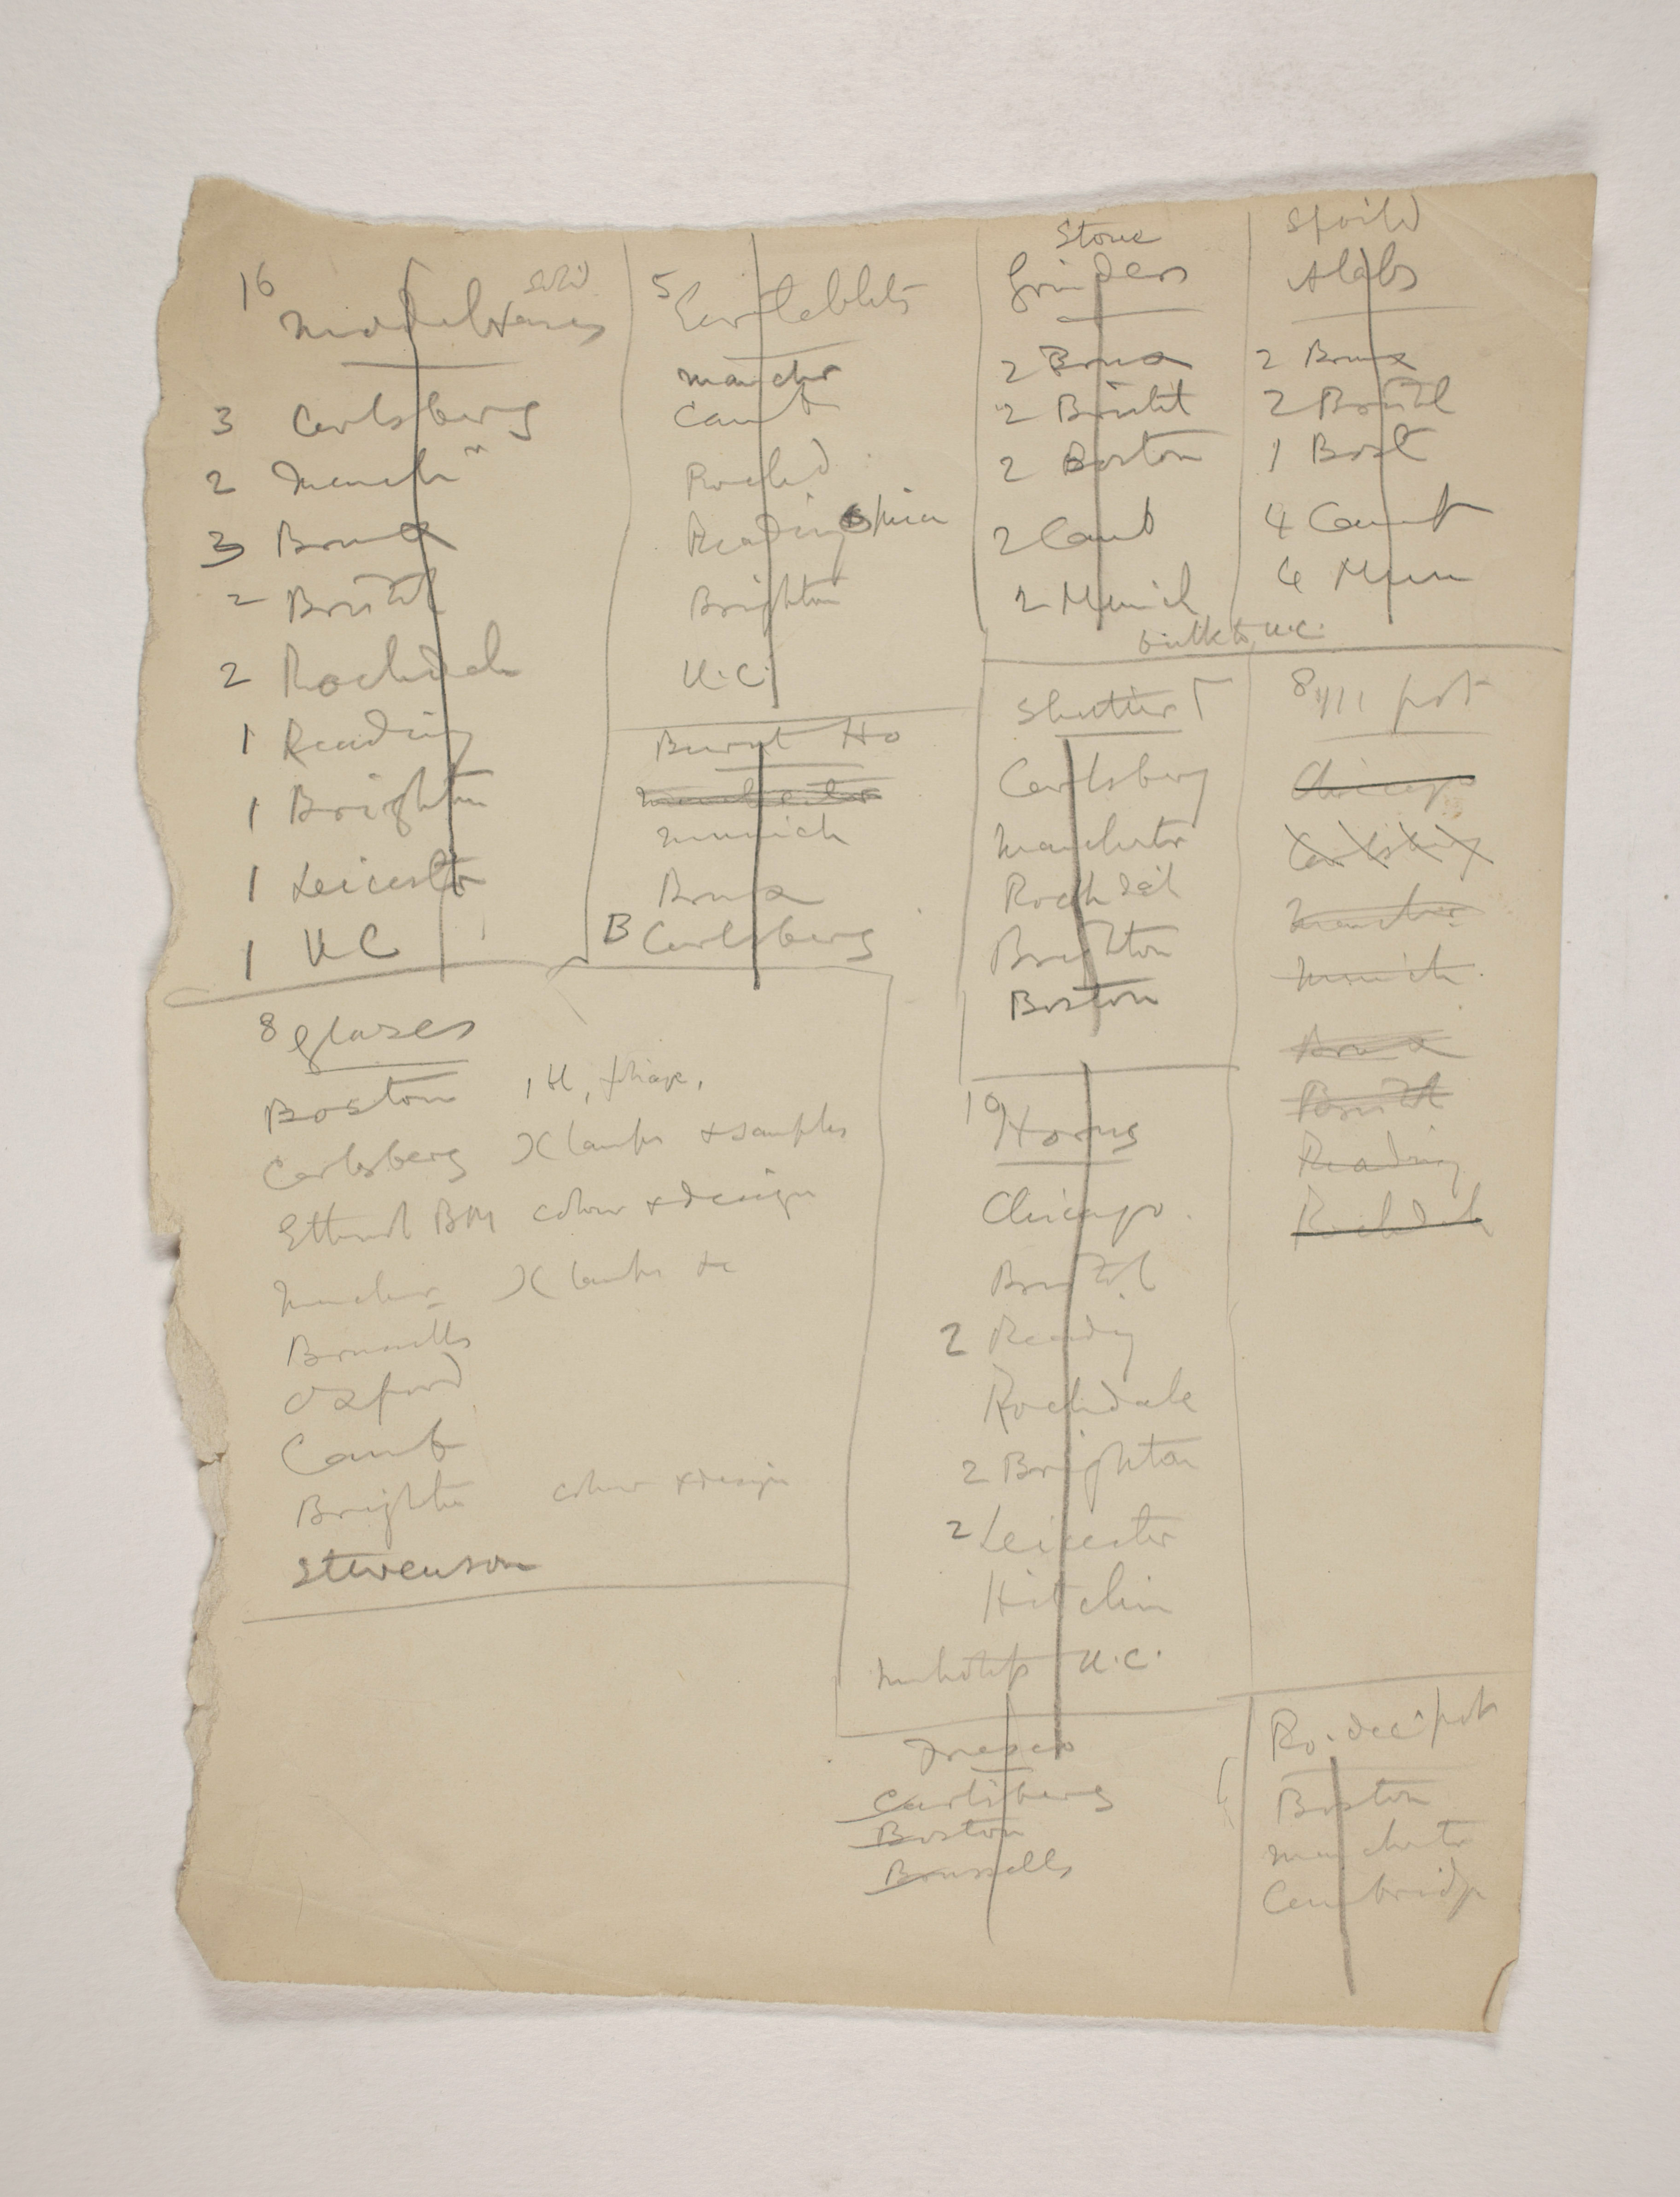 16
3 Carlsberg
2 Manch"
3 Brux
2 Bristol
2 Rochdale
1 Reading
1 Brighton
1 Leicester
1 U C
5
Manchr
Camb
Rochd
Reading
Brighton
U.C.
Burnt Ho
Manchester
Munich
Brux
B Carlsberg
Stone
Grinders
2 Brux
2 Bristl
2 Boston
2 Camb
2 Munich
Spoild
Alabs
2 Brux
2 Bristl
1 Bost
4 Camb
4 Mun
bulk to U.C.
Carlsberg
Manchester
Rochdal
Brighton
Boston
8 pot
Chicago
Carlsberg
Manchr
Munich
Brux
Bristl
Reading
Rochdale
8 glazes
Boston
Carlsberg X lamps + samples
BM colour + design
Manchr X lamps +c
Brussells
Oxford
Camb
Brighton colour + design
Stevenson
10 Horus
Chicago
Bristol
2 Reading
Rochdale
2 Brighton
2 Leicester
Hitchin
U.C.
Carlsberg
Boston
Brussells
Ro. dec pot
Boston
Manchester
Cambridge